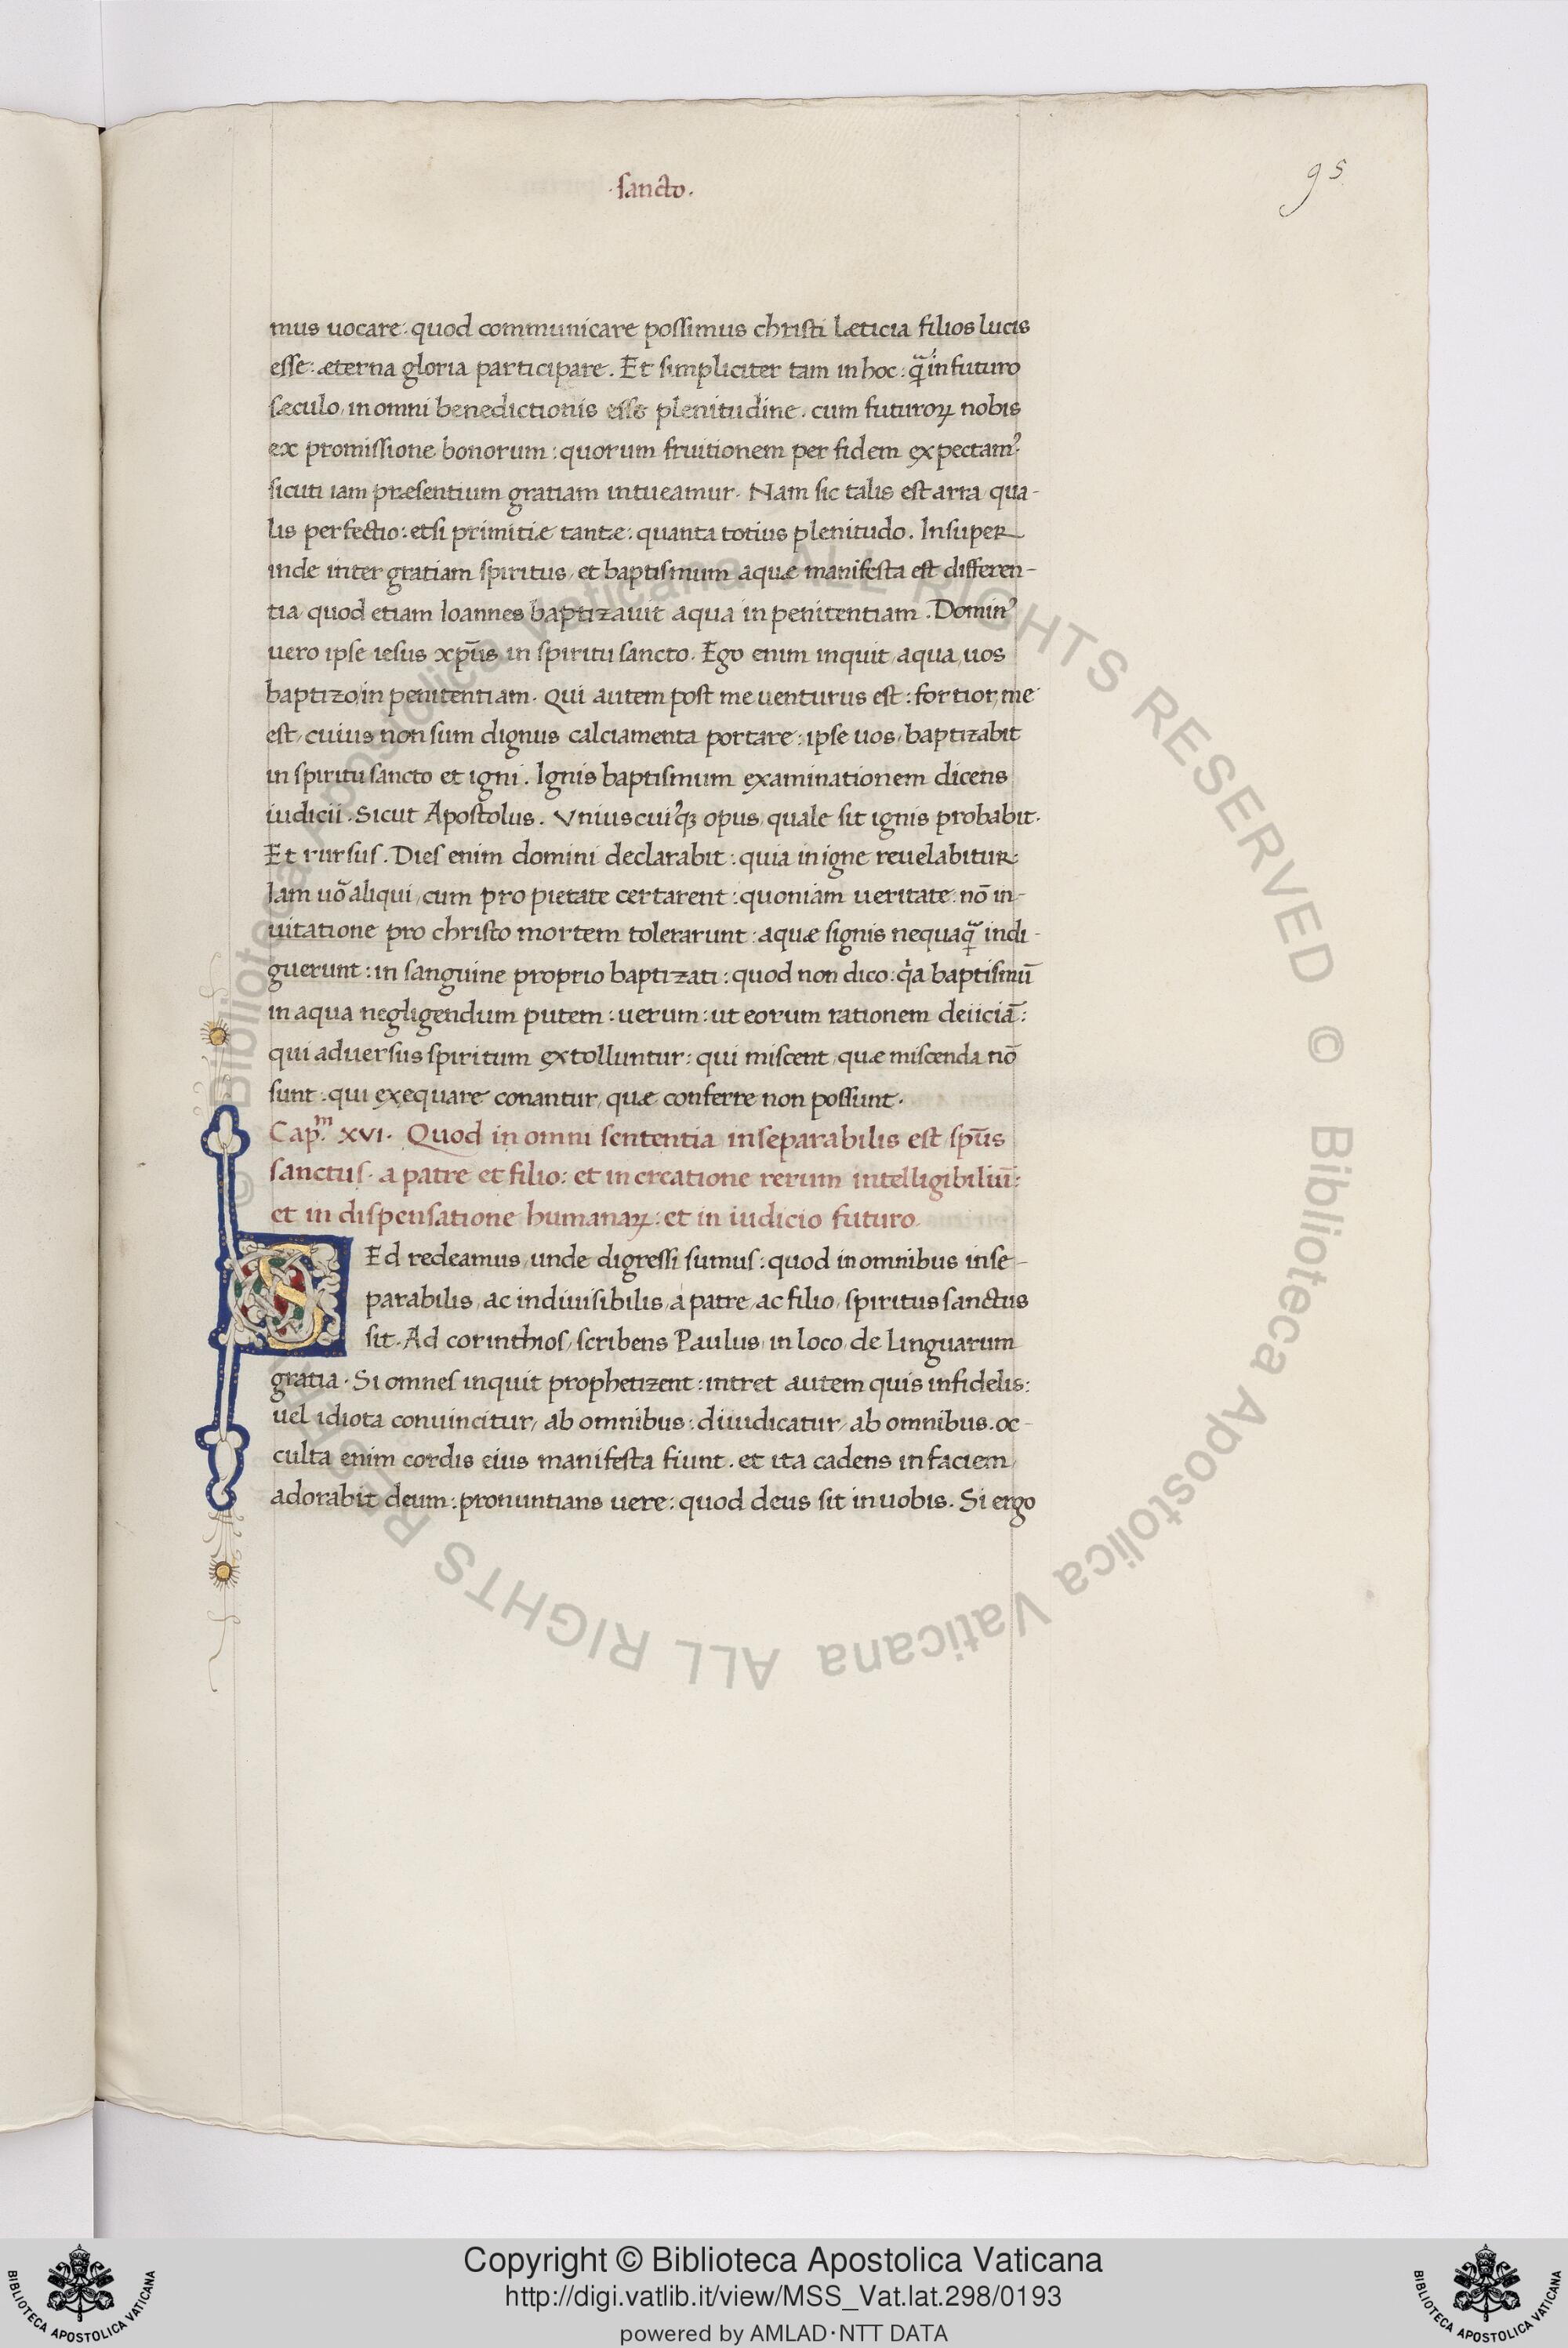 ·sancto·
95
mus uocare: quod communicare possimus christi læticia filios lucis
esse: æterna gloria participare. Et simpliciter tam in hoc: q̃ in futuro
sæculo, in omni benedictionis esse plenitudine. cum futuroꝝ nobis
ex promissione bonorum: quorum fruitionem per fidem expectam⁹
sicuti iam præsentium gratiam intueamur. Nam sic talis est arra qua-
lis perfectio: etsi primitiæ tantæ: quanta totius plenitudo. Insuper
inde inter gratiam spiritus, et baptismum aquæ manifesta est differen-
tia quod etiam Ioannes baptizauit aqua in penitentiam. Domin⁹
uero ipse iesus xp̄us in spiritu sancto. Ego enim inquit, aqua, uos
baptizo in penitentiam. Qui autem post me uenturus est: fortior, me
est, cuius non sum dignus calciamenta portare: ipse uos, baptizabit
in spiritu sancto et igni. Ignis baptismum examinationem dicens
iudicii. Sicut Apostolus. Vniuscui⁹qꝫ opus, quale sit ignis probabit.
Et rursus. Dies enim domini declarabit: quia in igne reuelabitur:
Iam uõ aliqui, cum pro pietate certarent: quoniam ueritate: nō in-
uitatione pro christo mortem tolerarunt: aquæ signis nequaq̃ indi-
guerunt: in sanguine proprio baptizati: quod non dico: qͥa baptismū
in aqua negligendum putem: uerum: ut eorum rationem deiiciā:
qui aduersus spiritum extolluntur: qui miscent, quæ miscenda nō
sunt: qui exequare conantur, quæ conferre non possunt.
Cap.ᵐ XVI. Quod in omni sententia inseparabilis est sp̄us
sanctus. a patre et filio: et in creatione rerum intelligibiliū:
et in dispensatione humanaꝝ: et in iudicio futuro.
SEd redeamus, unde digressi sumus: quod in omnibus inse-
parabilis, ac indiuisibilis, a patre, ac filio, spiritus sanctus
sit. Ad corinthios, scribens Paulus, in loco, de linguarum
gratia. Si omnes inquit prophetizent: intret autem quis infidelis:
uel idiota conuincitur, ab omnibus: diiudicatur, ab omnibus. oc-
culta enim cordis eius manifesta fiunt. et ita cadens in faciem,
adorabit deum: pronuntians uere: quod deus sit in uobis. Si ergo
© Biblioteca Apostolica Vaticana ALL RIGHTS RESERVED © Biblioteca Apostolica Vaticana ALL RIGHTS RESERVED
Copyright © Biblioteca Apostolica Vaticana
http://digi.vatlib.it/view/MSS_Vat.lat.298/0193
powered by AMLAD·NTT DATA
BIBLIOTECA APOSTOLICA VATICANA
BIBLIOTECA APOSTOLICA VATICANA